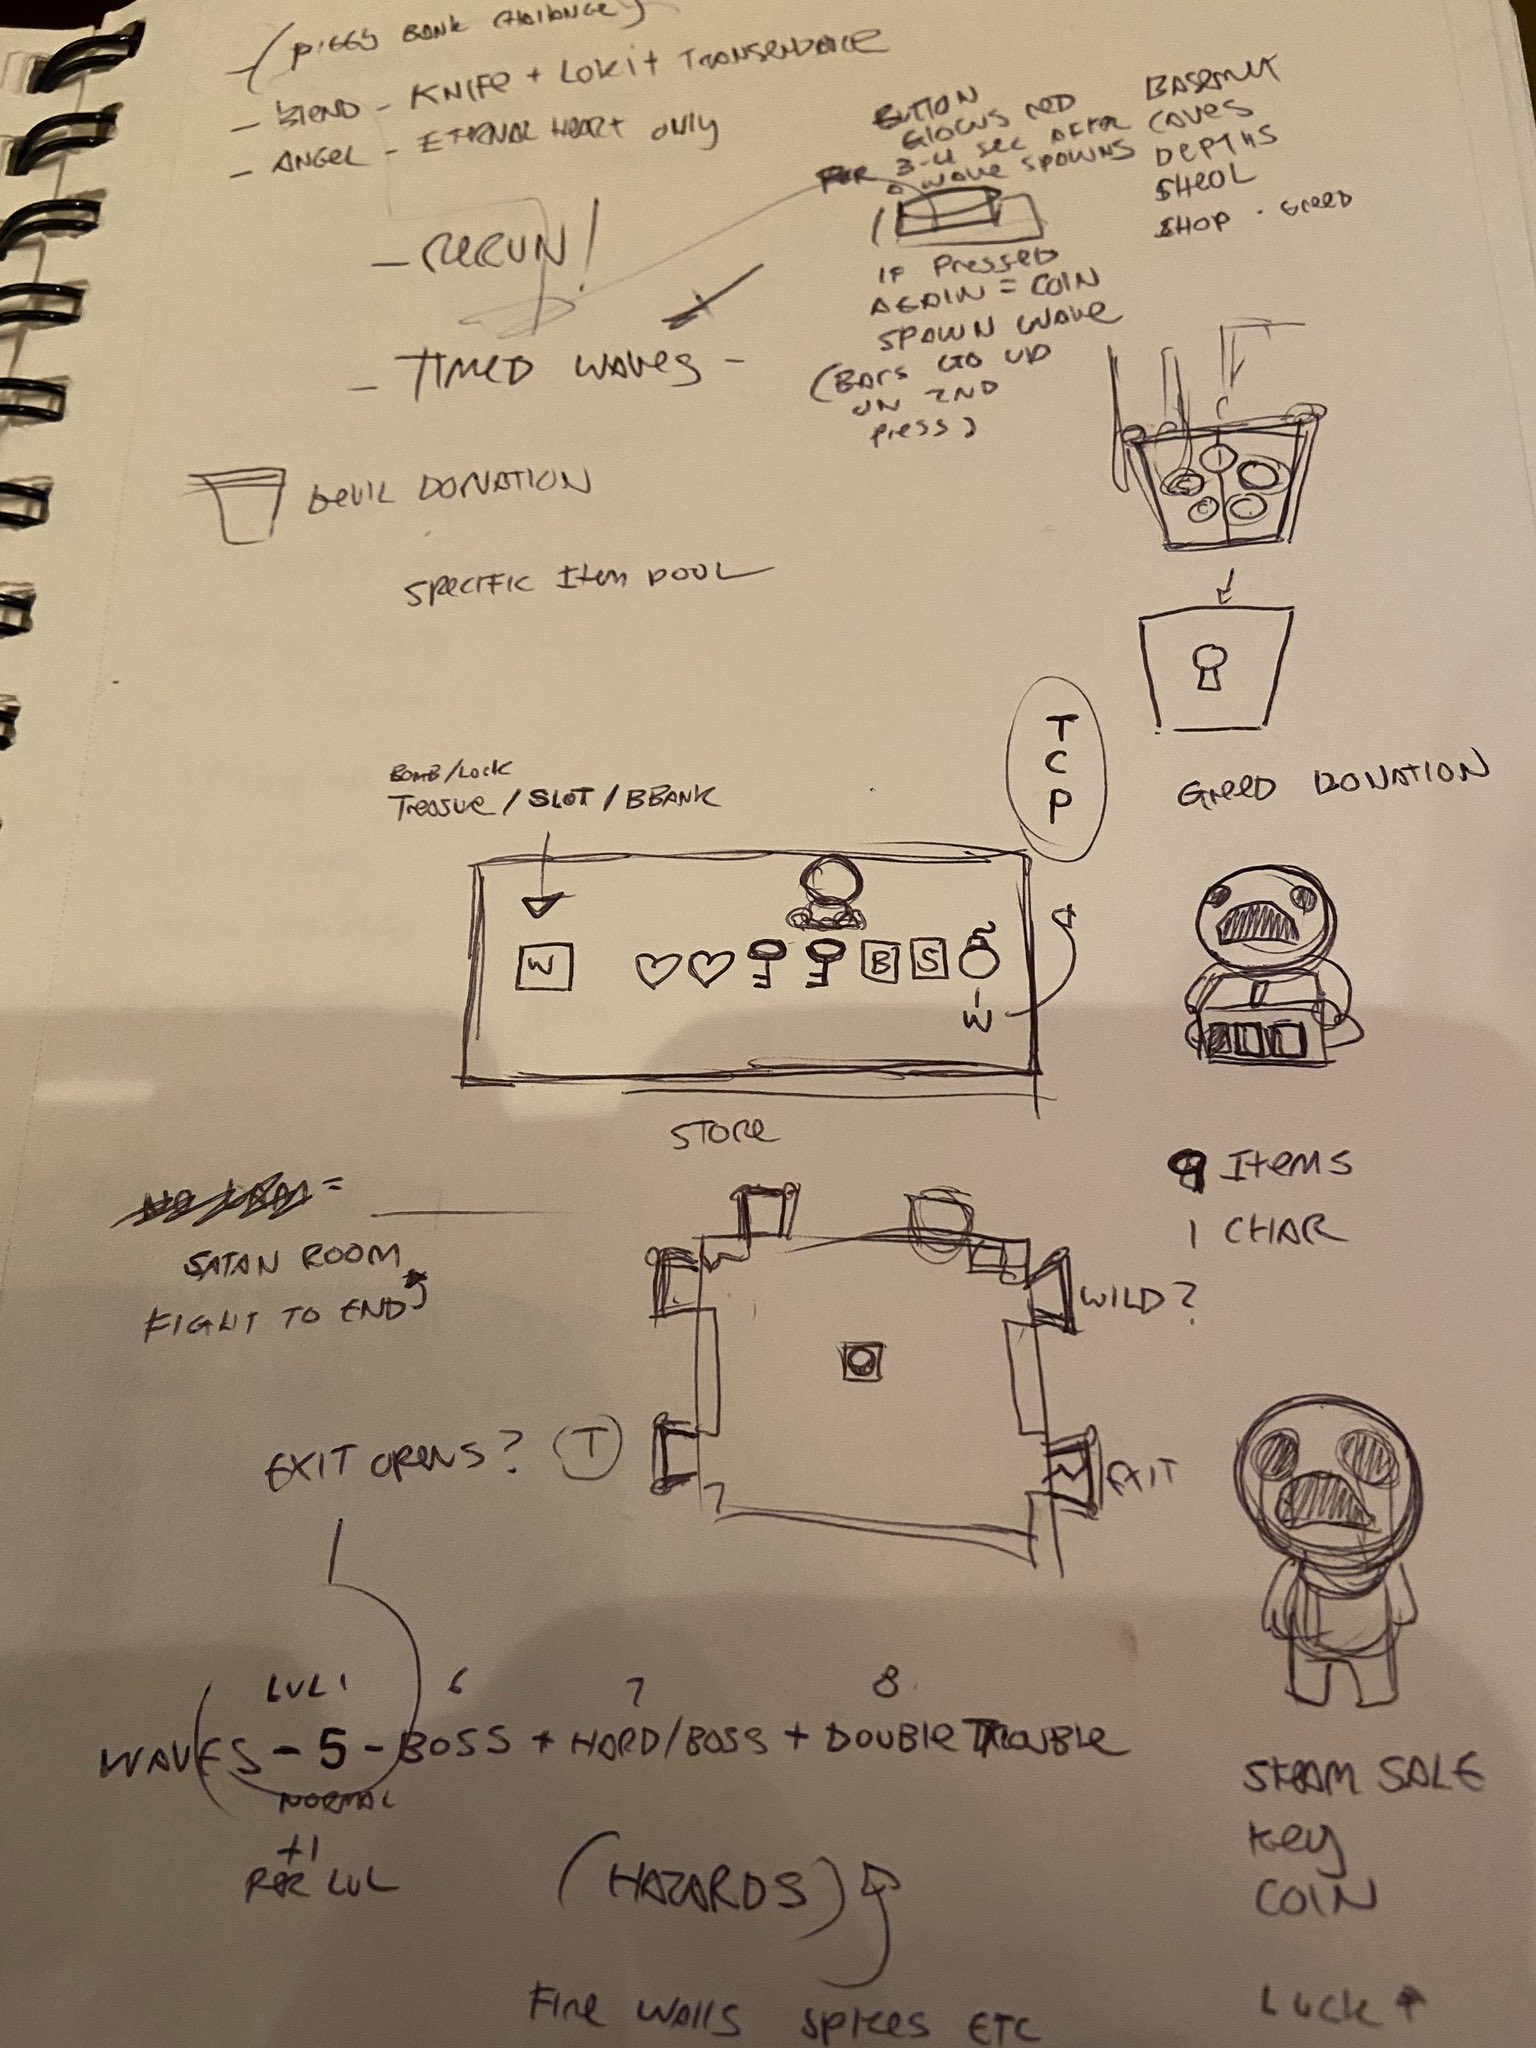 - (PIGGY BANK CHALLANGE)
- BLEND - KNIFE + LOKI + TRANSENDANCE
- ANGEL - ETERNAL HEART ONLY
- RERUN!
- TIMED WAVES -
BUTTON
GLOWS RED
FOR 3-4 SEC AFTER
A WAVE SPAWNS
IF PRESSED
AGAIN = COIN
SPAWN WAVE
(BARS GO UP
ON 2ND
PRESS)
BASEMENT
CAVES
DEPTHS
SHEOL
SHOP - GREED
DEVIL DONATION
SPECIFIC ITEM POOL
GREED DONATION
T
C
P
BOMB/LOCK
TREASUE / SLOT / BBANK
W
B
S
W
STORE
9 ITEMS
1 CHAR
=
SATAN ROOM
FIGHT TO END
WILD?
EXIT OPENS?
T
EXIT
LVL 1
6
7
8
WAVES - 5 - BOSS + HARD/BOSS + DOUBLE TROUBLE
NORMAL
+1
PER LVL
(HAZARDS)
FIRE WALLS SPIKES ETC
STEAM SALE
KEY
COIN
LUCK